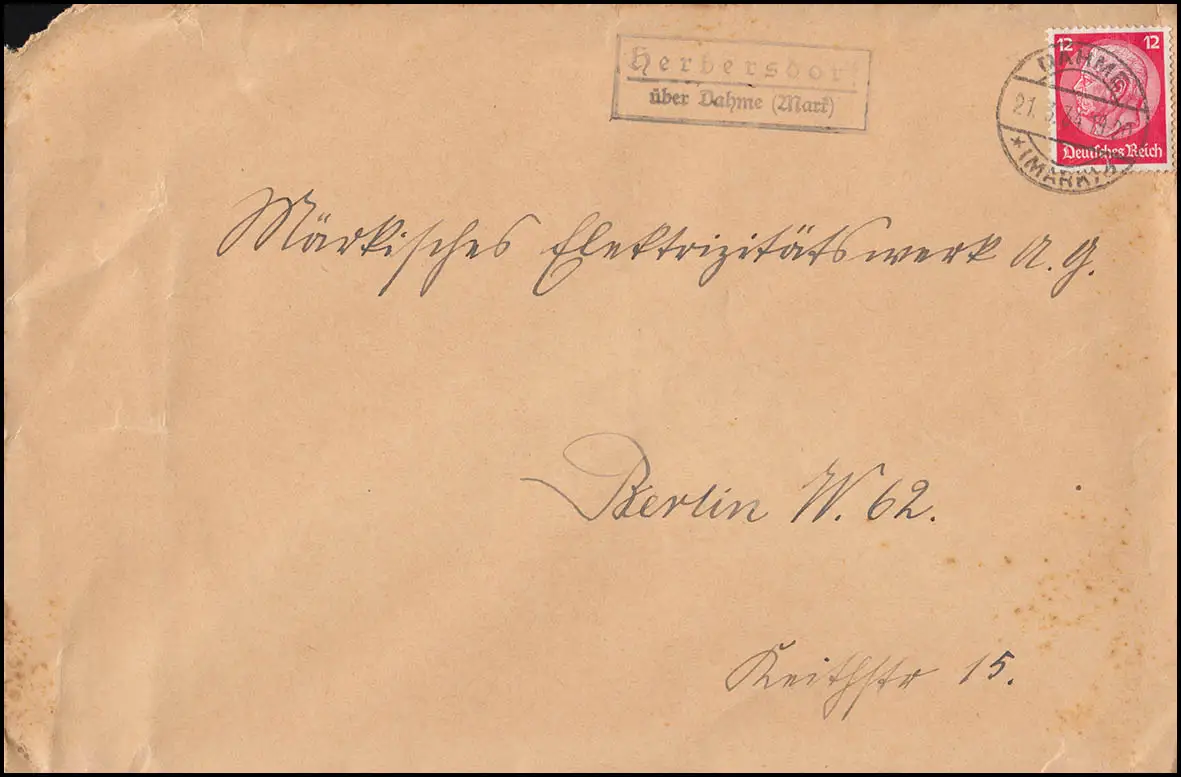 Herbersdorf
über Dahme (Mark)
12 12
DAHME
Deutsches Reich
* (MARK)
Märkisches Elektrizitätswerk A. G.
Berlin W. 62.
Keithstr 15.